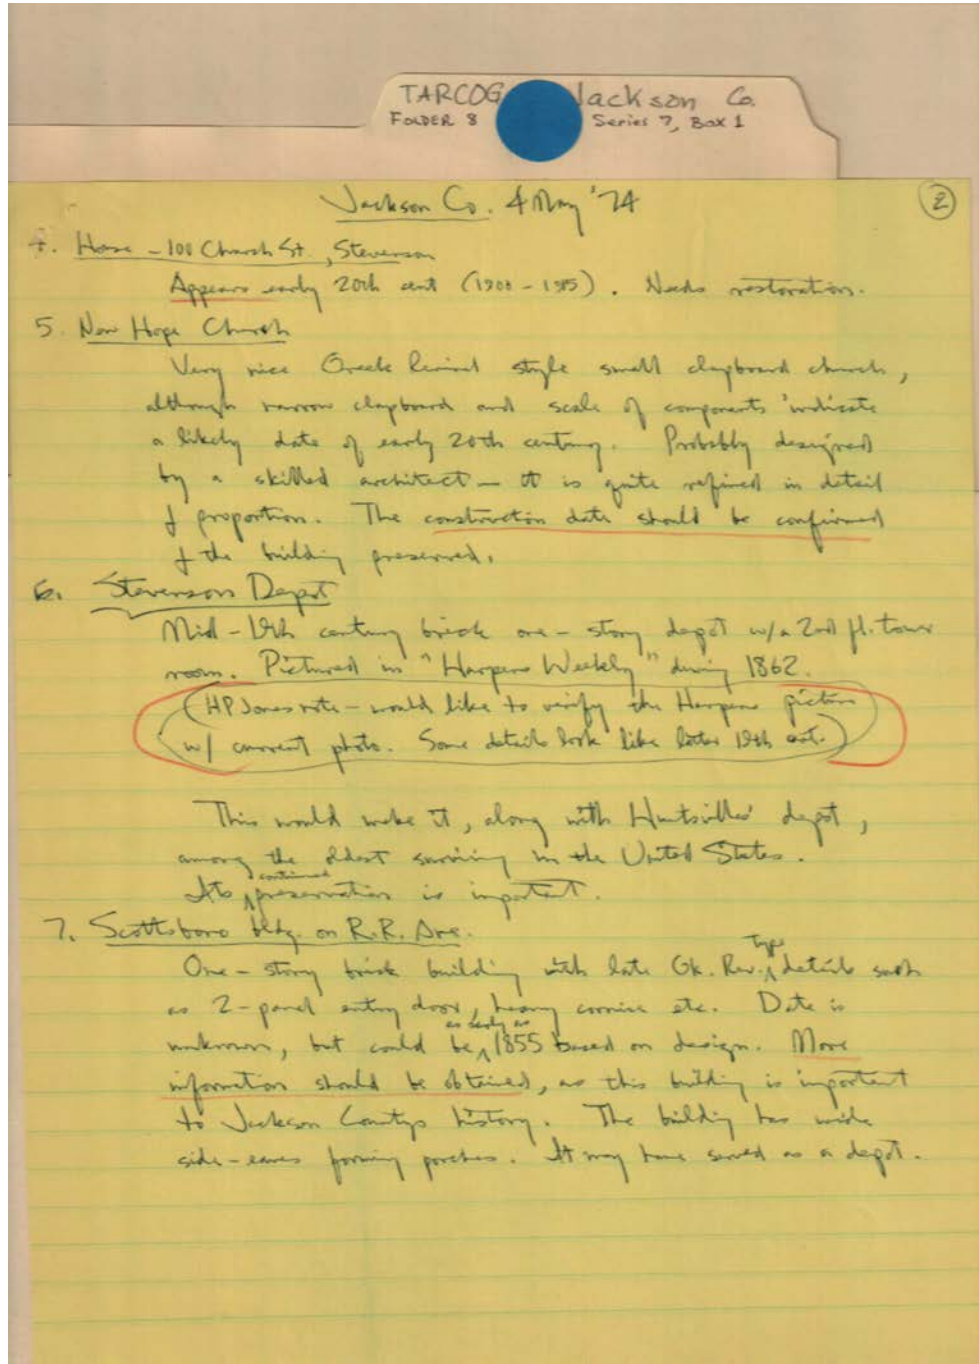 TARCOG Jackson Co.
FOLDER 8 Series 7, Box 1
Jackson Co. 4 May '74
2
4. House - 100 Church St., Stevenson
Appears early 20th cent (1900 - 1905). Needs restoration.
5. New Hope Church
Very nice Greek Revival style small clapboard church,
although narrow clapboard and scale of components indicate
a likely date of early 20th century. Probably designed
by a skilled architect - it is quite refined in detail
& proportion. The construction date should be confirmed
& the building preserved.
6. Stevenson Depot
Mid-19th century brick one-story depot w/a 2nd fl. tower
room. Pictured in "Harpers Weekly" during 1862.
(HP Jones note - would like to verify the Harpers picture
w/ current photo. Some details look like later 19th cent.)
This would make it, along with Huntsville's depot,
among the oldest surviving in the United States.
Its continued preservation is important.
7. Scottsboro bldg. on R.R. Ave.
One-story brick building with late Gk. Rev. type details such
as 2-panel entry door, heavy cornice etc. Date is
unknown, but could be as early as 1855 based on design. More
information should be obtained, as this building is important
to Jackson Countys history. The building has wide
side-eaves forming porches. It may have served as a depot.